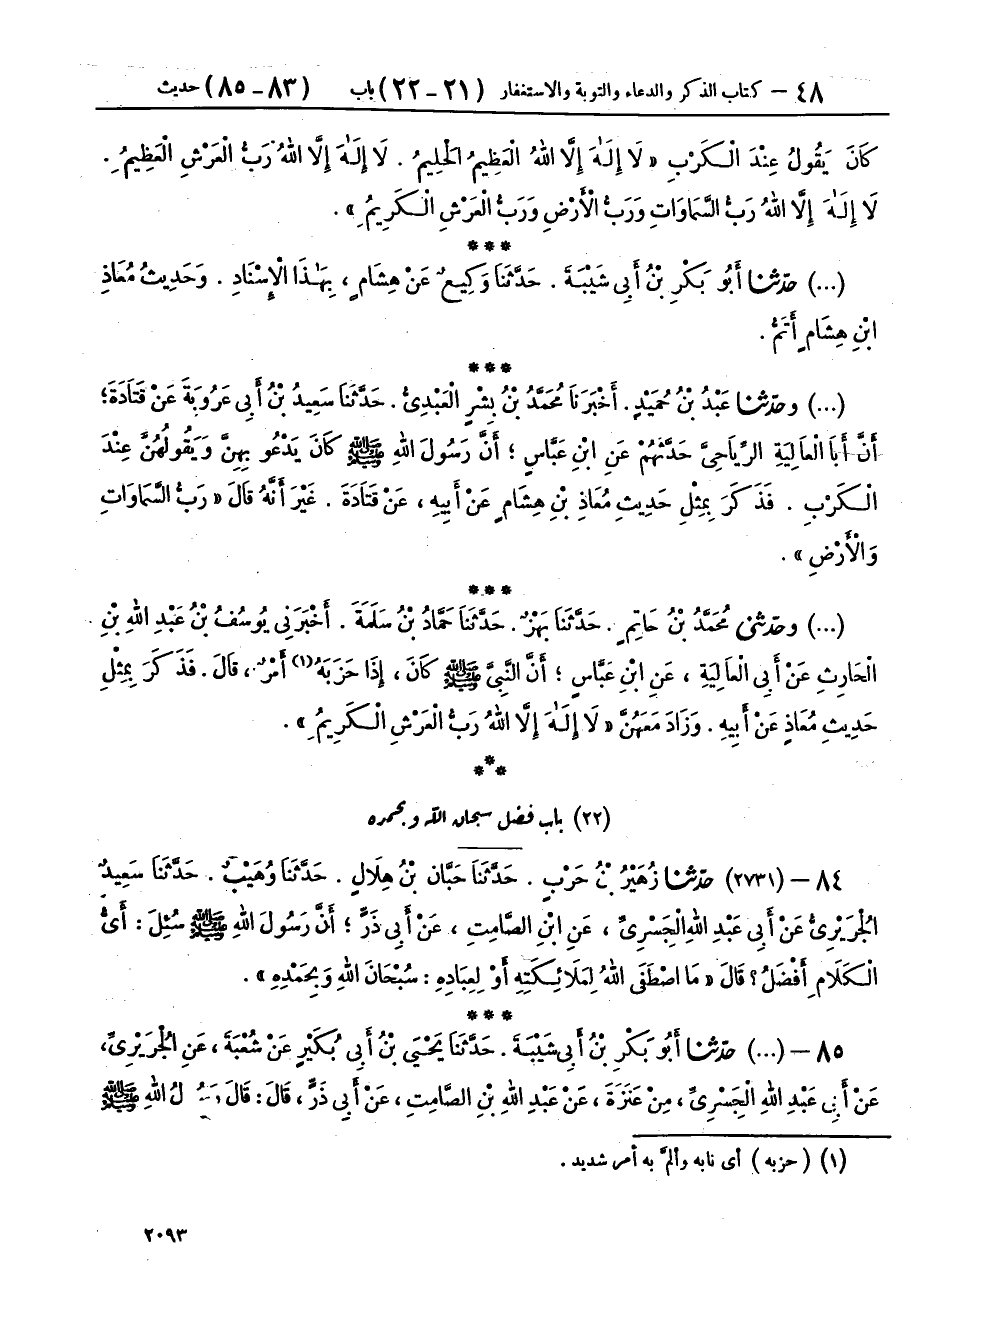 ٤٨ – كتاب الذكر والدعاء والتوبة والاستغفار (٢١-٢٢) باب (٨٣-٨٥) حديث
كَانَ يَقُولُ عِنْدَ الْكَرْبِ « لَا إِلَٰهَ إِلَّا اللهُ الْعَظِيمُ الْحَلِيمُ . لَا إِلَٰهَ إِلَّا اللهُ رَبُّ الْعَرْشِ الْعَظِيمِ .
لَا إِلَٰهَ إِلَّا اللهُ رَبُّ السَّمَاوَاتِ وَرَبُّ الْأَرْضِ وَرَبُّ الْعَرْشِ الْكَرِيمُ » .
***
(...) حدّثنا أَبُو بَكْرِ بْنُ أَبِي شَيْبَةَ . حَدَّثَنَا وَكِيعٌ عَنْ هِشَامٍ ، بِهَٰذَا الْإِسْنَادِ . وَحَدِيثُ مُعَاذِ
ابْنِ هِشَامٍ أَتَمُّ .
***
(...) وحدّثنا عَبْدُ بْنُ حُمَيْدٍ . أَخْبَرَنَا مُحَمَّدُ بْنُ بِشْرٍ الْعَبْدِىُّ . حَدَّثَنَا سَعِيدُ بْنُ أَبِي عَرُوبَةَ عَنْ قَتَادَةَ ؛
أَنَّ أَبَا الْعَالِيَةِ الرِّيَاحِىَّ حَدَّثَهُمْ عَنِ ابْنِ عَبَّاسٍ ؛ أَنَّ رَسُولَ اللهِ ﷺ كَانَ يَدْعُو بِهِنَّ وَيَقُولُهُنَّ عِنْدَ
الْكَرْبِ . فَذَكَرَ بِمِثْلِ حَدِيثِ مُعَاذِ بْنِ هِشَامٍ عَنْ أَبِيهِ ، عَنْ قَتَادَةَ . غَيْرَ أَنَّهُ قَالَ « رَبُّ السَّمَاوَاتِ
وَالْأَرْضِ » .
***
(...) وحدّثنى مُحَمَّدُ بْنُ حَاتِمٍ . حَدَّثَنَا بَهْزٌ . حَدَّثَنَا حَمَّادُ بْنُ سَلَمَةَ . أَخْبَرَنِى يُوسُفُ بْنُ عَبْدِ اللهِ بْنِ
الْحَارِثِ عَنْ أَبِي الْعَالِيَةِ ، عَنِ ابْنِ عَبَّاسٍ ؛ أَنَّ النَّبِىَّ ﷺ كَانَ ، إِذَا حَزَبَهُ(١) أَمْرٌ ، قَالَ . فَذَكَرَ بِمِثْلِ
حَدِيثِ مُعَاذٍ عَنْ أَبِيهِ . وَزَادَ مَعَهُنَّ « لَا إِلَٰهَ إِلَّا اللهُ رَبُّ الْعَرْشِ الْكَرِيمُ » .
***
(٢٢) باب فضل سبحان الله وبحمده
٨٤ – (٢٧٣١) حدّثنا زُهَيْرُ بْنُ حَرْبٍ . حَدَّثَنَا حَبَّانُ بْنُ هِلَالٍ . حَدَّثَنَا وُهَيْبٌ . حَدَّثَنَا سَعِيدٌ
الْجُرَيْرِىُّ عَنْ أَبِي عَبْدِ اللهِ الْجَسْرِىِّ ، عَنِ ابْنِ الصَّامِتِ ، عَنْ أَبِي ذَرٍّ ؛ أَنَّ رَسُولَ اللهِ ﷺ سُئِلَ : أَىُّ
الْكَلَامِ أَفْضَلُ ؟ قَالَ « مَا اصْطَفَى اللهُ لِمَلَائِكَتِهِ أَوْ لِعِبَادِهِ : سُبْحَانَ اللهِ وَبِحَمْدِهِ » .
***
٨٥ – (...) حدّثنا أَبُو بَكْرِ بْنُ أَبِي شَيْبَةَ . حَدَّثَنَا يَحْيَىٰ بْنُ أَبِي بُكَيْرٍ عَنْ شُعْبَةَ ، عَنِ الْجُرَيْرِىِّ ،
عَنْ أَبِي عَبْدِ اللهِ الْجَسْرِىِّ ، مِنْ عَنَزَةَ ، عَنْ عَبْدِ اللهِ بْنِ الصَّامِتِ ، عَنْ أَبِي ذَرٍّ ، قَالَ : قَالَ رَسُولُ اللهِ ﷺ
(١) (حزبه) أى نابه وألمّ به أمر شديد .
٢٠٩٣